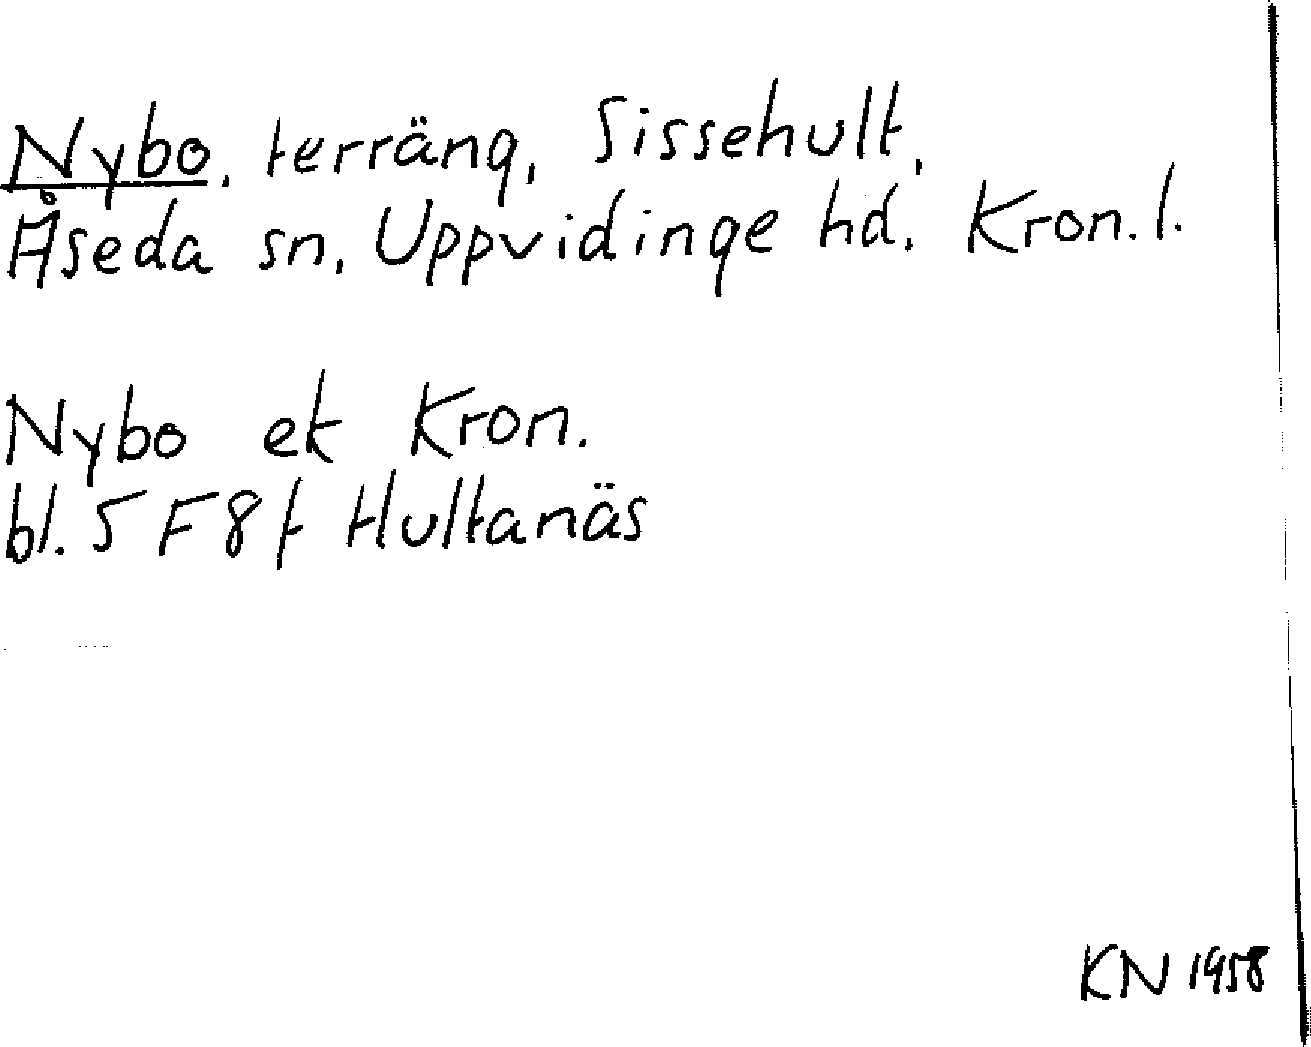 Nybo, terräng, Sissehult,
Åseda sn, Uppvidinge hd, Kron. l.
Nybo ek Kron.
bl. 5 F 8 f Hultanäs
KN 1958